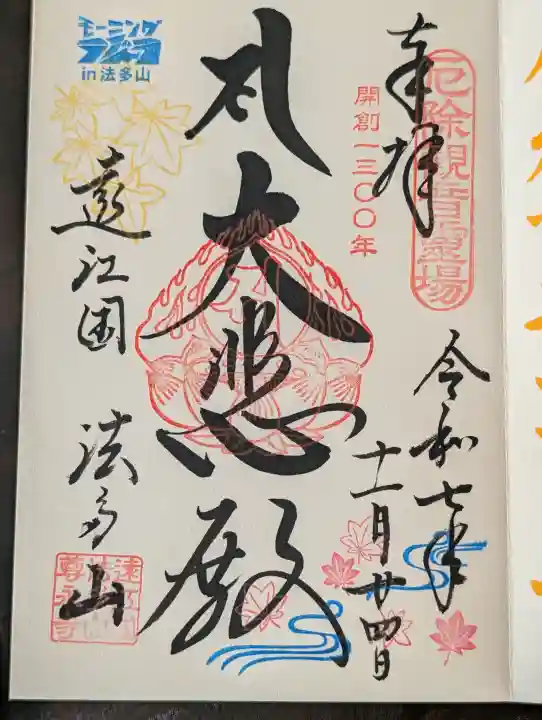 厄除観音霊場
奉拝
開創一三〇〇年
令和七年
十一月廿四日
大悲殿
モーニング
in法多山
遠江国 法多山